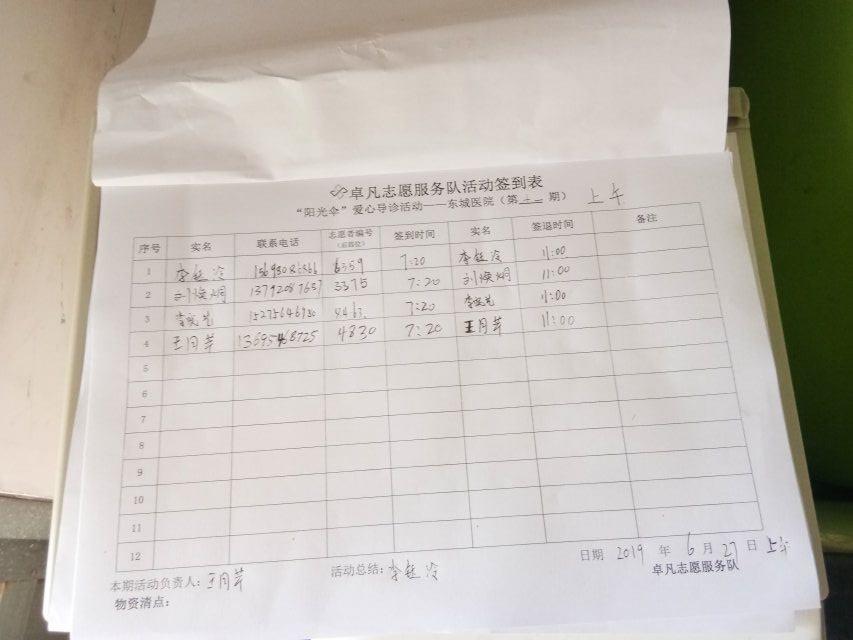 卓凡志愿服务队活动签到表
“阳光伞”爱心导诊活动——东城医院（第 十二 期） 上午
序号 实名 联系电话 志愿者编号（后四位） 签到时间 实名 签退时间 备注
1 李 冷 6359 7:20 李 冷 11:00
2 刘焕炯 3375 7:20 刘焕炯 11:00
3 15275646930 7:20 11:00
4 王月芹 13695468725 4830 7:20 王月芹 11:00
5
6
7
8
9
10
11
12
日期 2019 年 6 月 27 日 上午
本期活动负责人：王月芹 活动总结：李 冷 卓凡志愿服务队
物资清点：